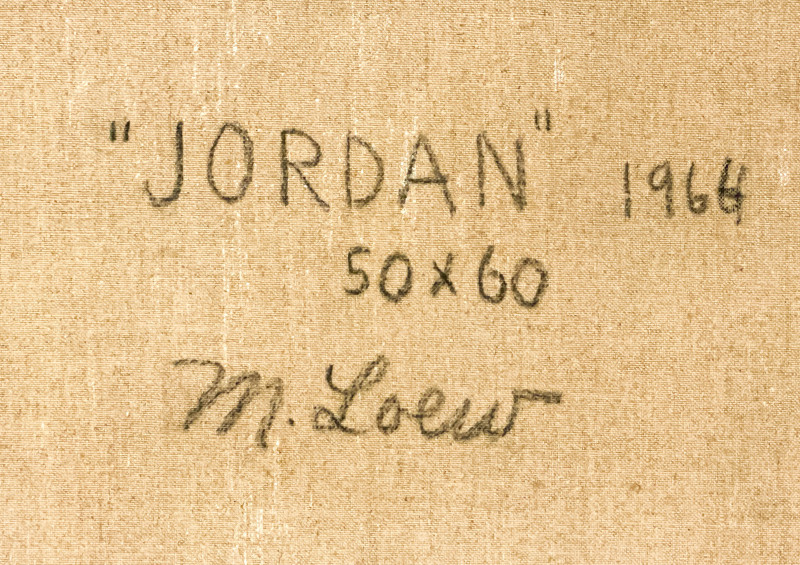 "JORDAN" 1964
50x60
M. Loew